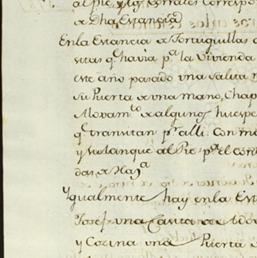 al Pie, y los corrales correspo
de dha Estancia
En la Estancia de Tortuguillas
sitas q havia p.a la Vivienda
este año pasado una salita
su Puerta de una mano, Chap
Movam.to de algunos huespe
q transitan p.r alli con
y su tanque al Pie p.a el
das de Has.a
Ygualmente hay en la Est
Josef una Casita de Ado
y Cocina una Puerta